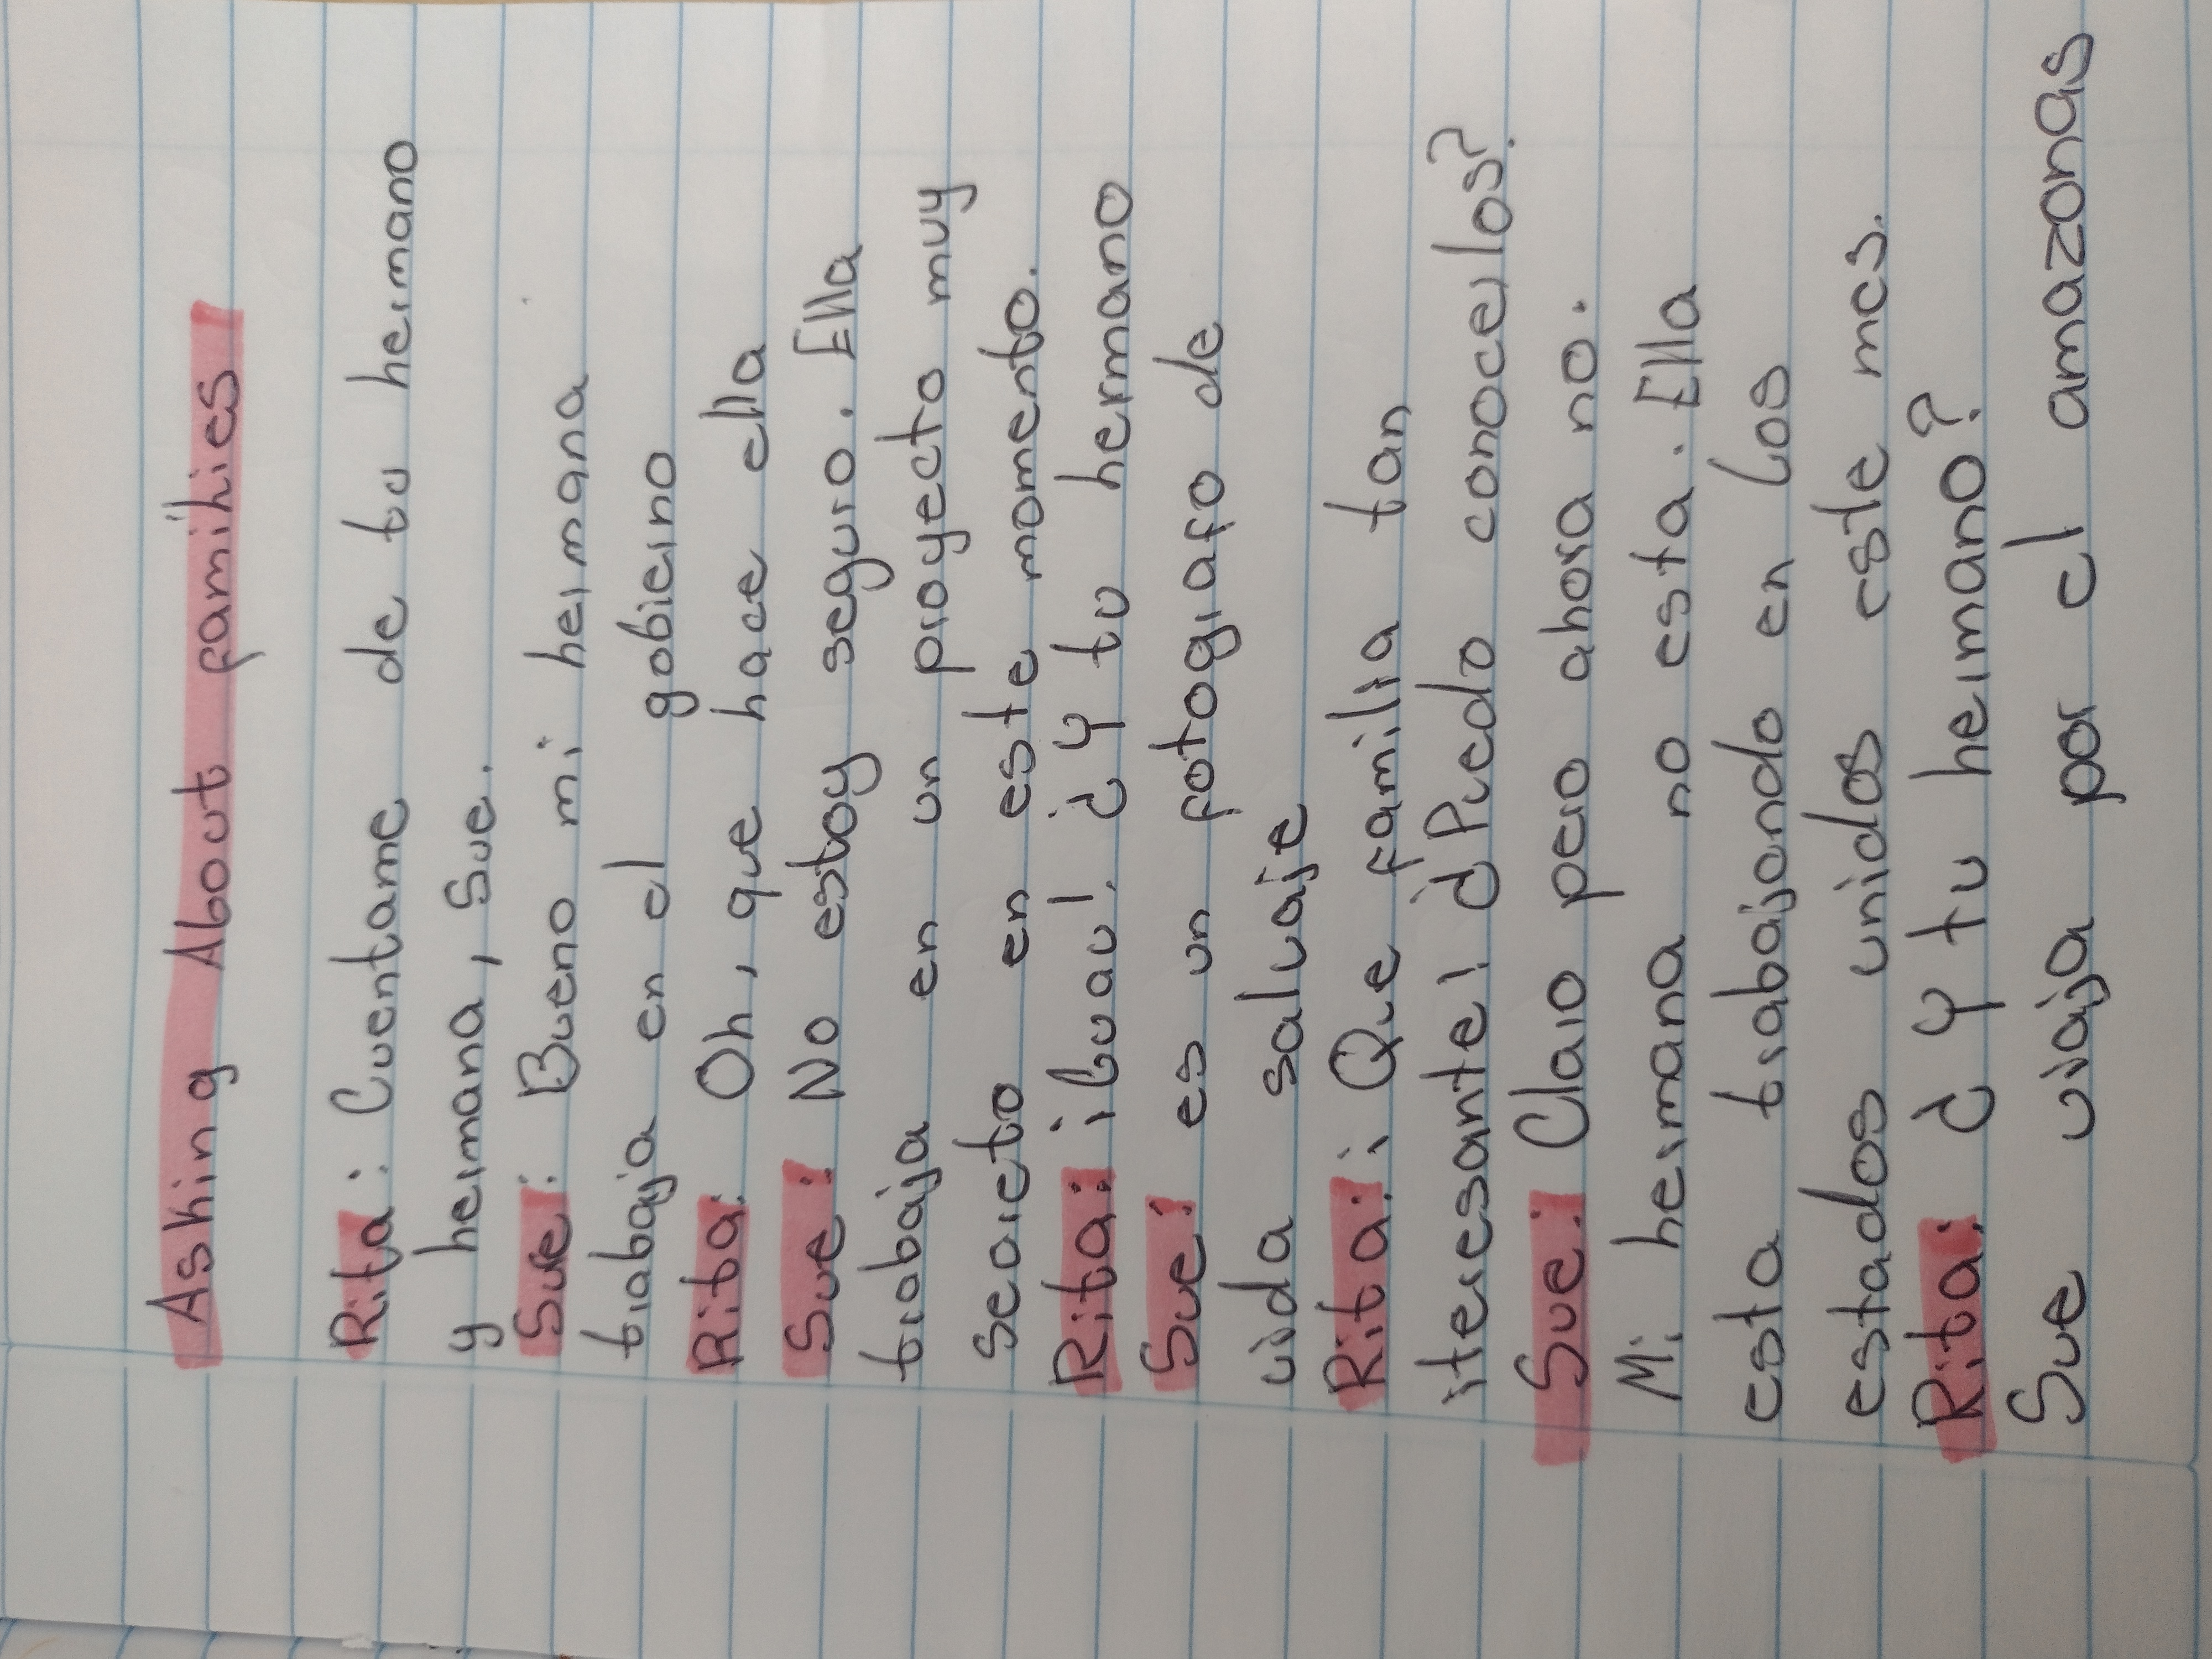 Asking About famihies
Rita: Cuentame de tu hermano
y hermana, Sue.
Sue: Bueno mi hermana
trabaja en el gobierno
Rita: Oh, que hace ella
Sue: No estoy seguro. Ella
trabaja en un proyecto muy
secreto en este momento.
Rita: ¡Guau! ¿Y tu hermano
Sue: es un fotografo de
vida salvaje
Rita: ¡Que familia tan
iteresante! ¿Puedo conocerlos?
Sue: Claro pero ahora no.
Mi hermana no esta. Ella
esta trabajando en los
estados unidos este mes.
Rita: ¿Y tu hermano?
Sue viaja por el amazonas